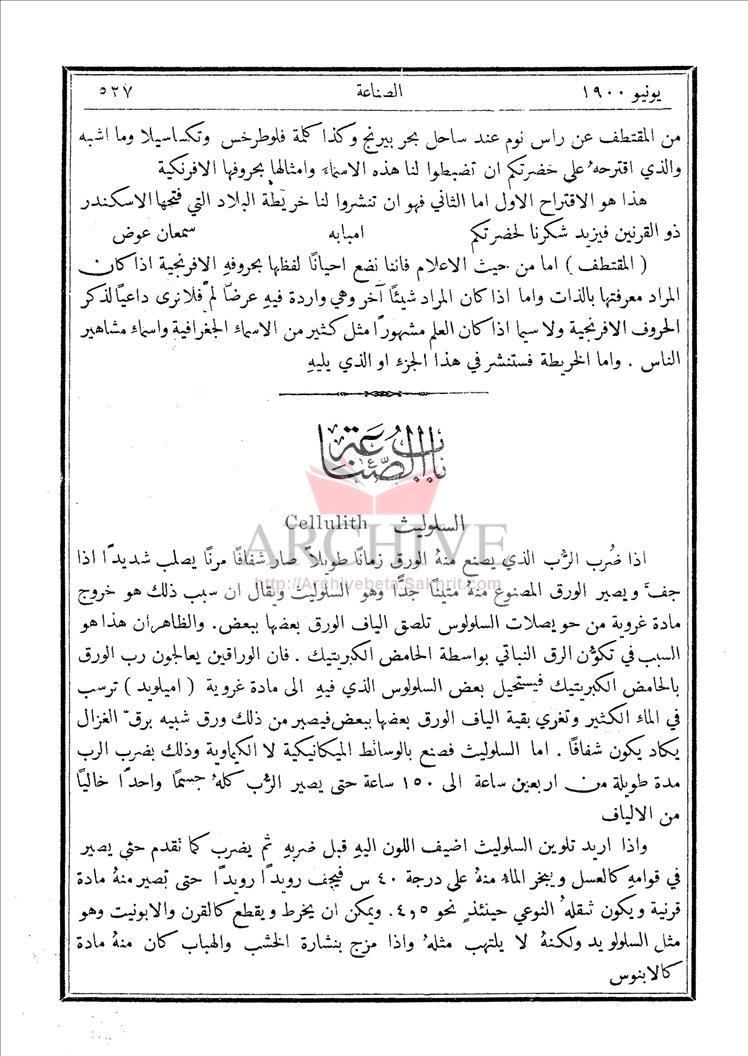 يونيو ١٩٠٠ الصناعة ٥٢٧
من المقتطف عن راس نوم عند ساحل بحر بيرنج وكذا كلمة فلوطرخس وتكساسيلا وما اشبه
والذي اقترحهُ على حضرتكم ان تضبطوا لنا هذه الاسماء وامثالها بحروفها الافرنكية
هذا هو الاقتراح الاول اما الثاني فهو ان تنشروا لنا خريطة البلاد التي فتحها الاسكندر
ذو القرنين فيزيد شكرنا لحضرتكم امبابه سمعان عوض
( المقتطف ) اما من حيث الاعلام فاننا نضع احيانًا لفظها بحروفهِ الافرنجية اذا كان
المراد معرفتها بالذات واما اذا كان المراد شيئًا آخر وهي واردة فيهِ عرضًا لم فلا نرى داعيًا لذكر
الحروف الافرنجية ولا سيما اذا كان العلم مشهورًا مثل كثير من الاسماء الجغرافية واسماء مشاهير
الناس . واما الخريطة فستنشر في هذا الجزء او الذي يليهِ
باب الصناعة
السلوليث Cellulith
ARCHIVE
اذا ضُرب الرُّب الذي يصنع منهُ الورق زمانًا طويلاً صار شفافًا مرنًا يصلب شديدًا اذا
http://Archivebeta.Sakhrit.com
جفَّ ويصير الورق المصنوع منهُ متينًا جدًّا وهو السلوليث ويقال ان سبب ذلك هو خروج
مادة غروية من حويصلات السلولوس تلصق الياف الورق بعضها ببعض. والظاهر ان هذا هو
السبب في تكوُّن الرق النباتي بواسطة الحامض الكبريتيك . فان الوراقين يعالجون رب الورق
بالحامض الكبريتيك فيستحيل بعض السلولوس الذي فيهِ الى مادة غروية ( اميلويد ) ترسب
في الماء الكثير وتغري بقية الياف الورق بعضها ببعض فيصير من ذلك ورق شبيه برقّ الغزال
يكاد يكون شفافًا . اما السلوليث فصنع بالوسائط الميكانيكية لا الكيماوية وذلك بضرب الرب
مدة طويلة من اربعين ساعة الى ١٥٠ ساعة حتى يصير الرُّب كلهُ جسمًا واحدًا خاليًا
من الالياف
واذا اريد تلوين السلوليث اضيف اللون اليهِ قبل ضربهِ ثم يضرب كما تقدم حتى يصير
في قوامهِ كالعسل ويبخر الماء منهُ على درجة ٤٠ س فيجف رويدًا رويدًا حتى تصير منهُ مادة
قرنية ويكون ثقلهُ النوعي حينئذٍ نحو ٤,٥. ويمكن ان يخرط ويقطع كالقرن والابونيت وهو
مثل السلولويد ولكنهُ لا يلتهب مثلهُ واذا مزج بنشارة الخشب والهباب كان منهُ مادة
كالابنوس